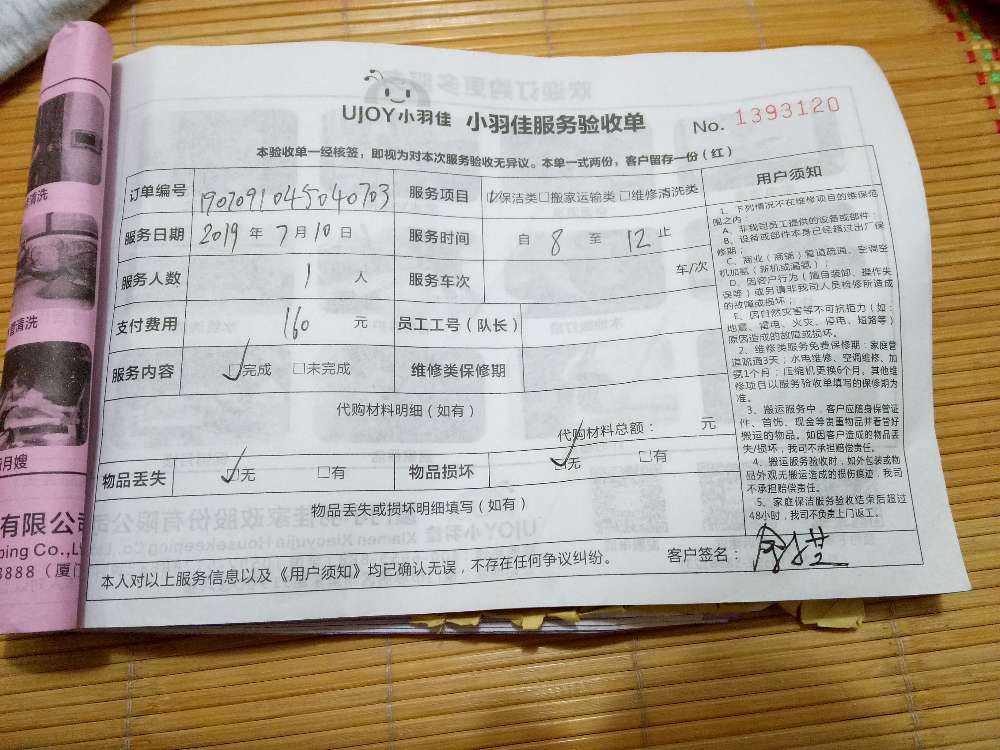 UJOY小羽佳 小羽佳服务验收单 No. 1393120
本验收单一经核签，即视为对本次服务验收无异议。本单一式两份，客户留存一份（红）
订单编号 1907091045040703 服务项目 ☑保洁类□搬家运输类□维修清洗类
服务日期 2019 年 7 月 10 日 服务时间 自 8 至 12 止
服务人数 1 人 服务车次 车/次
支付费用 160 元 员工工号（队长）
服务内容 ☑完成 □未完成 维修类保修期
代购材料明细（如有）
代购材料总额： 元
物品丢失 ☑无 □有 物品损坏 ☑无 □有
物品丢失或损坏明细填写（如有）
客户签名：
本人对以上服务信息以及《用户须知》均已确认无误，不存在任何争议纠纷。
用户须知
1、下列情况不在维修项目的维保范
围之内：
A、非我司员工提供的设备或部件；
B、设备或部件本身已经超过出厂保
修期；
C、商业（商铺）管道疏通、空调空
机加氨（新机或漏氨）；
D、因客户行为（擅自装卸、操作失
误等）或另请非我司人员检修所造成
的故障或损坏；
E、因自然灾害等不可抗拒力（如：
地震、雷电、火灾、停电、短路等）
原因造成的故障或损坏。
2、维修类服务免费保修期：家庭管
道疏通3天；水电维修、空调维修、加
氨1个月；压缩机更换6个月。其他维
修项目以服务验收单填写的保修期为
准。
3、搬运服务中，客户应随身保管证
件、首饰、现金等贵重物品并看管好
搬运的物品。如因客户造成的物品丢
失/损坏，我司不承担赔偿责任。
4、搬运服务验收时，如外包装或物
品外观无搬运造成的损伤痕迹，我司
不承担赔偿责任。
5、家庭保洁服务验收结束后超过
48小时，我司不负责上门返工。
清洗
清洗
月嫂
有限公司
ping Co.,L
8888（厦门